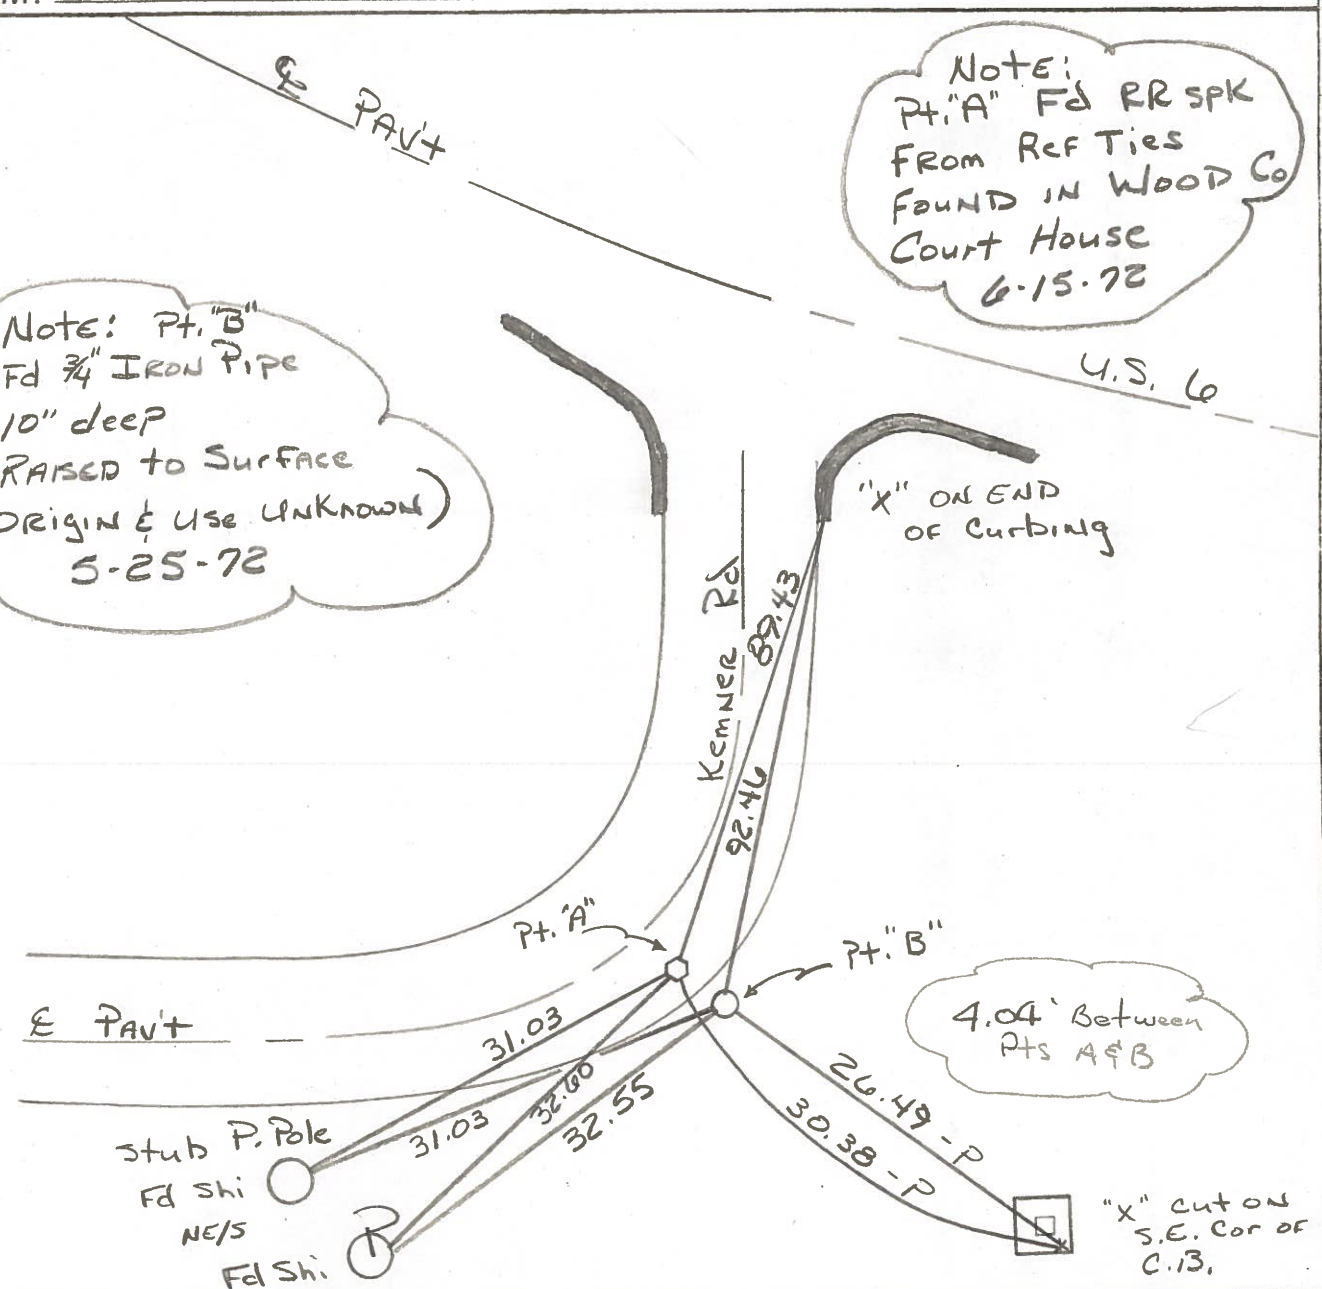 ℄ PAV't
Note:
Pt. "A" Fd RR spk
FROM Ref Ties
FOUND IN WOOD Co
Court House
6-15-72
U.S. 6
Note: Pt. "B"
Fd 3/4" IRON Pipe
10" deep
RAISED to Surface
ORIGIN & Use UNKNOWN)
5-25-72
"X" ON END
OF Curbing
Kemner Rd
89.43
92.46
Pt. "A"
Pt. "B"
℄ PAV't
4.04' Between
Pts A & B
31.03
31.03
32.60
32.55
26.49 - P
30.38 - P
Stub P. Pole
Fd Shi
NE/S
P
Fd Shi.
"X" cut on
S.E. Cor of
C.B.